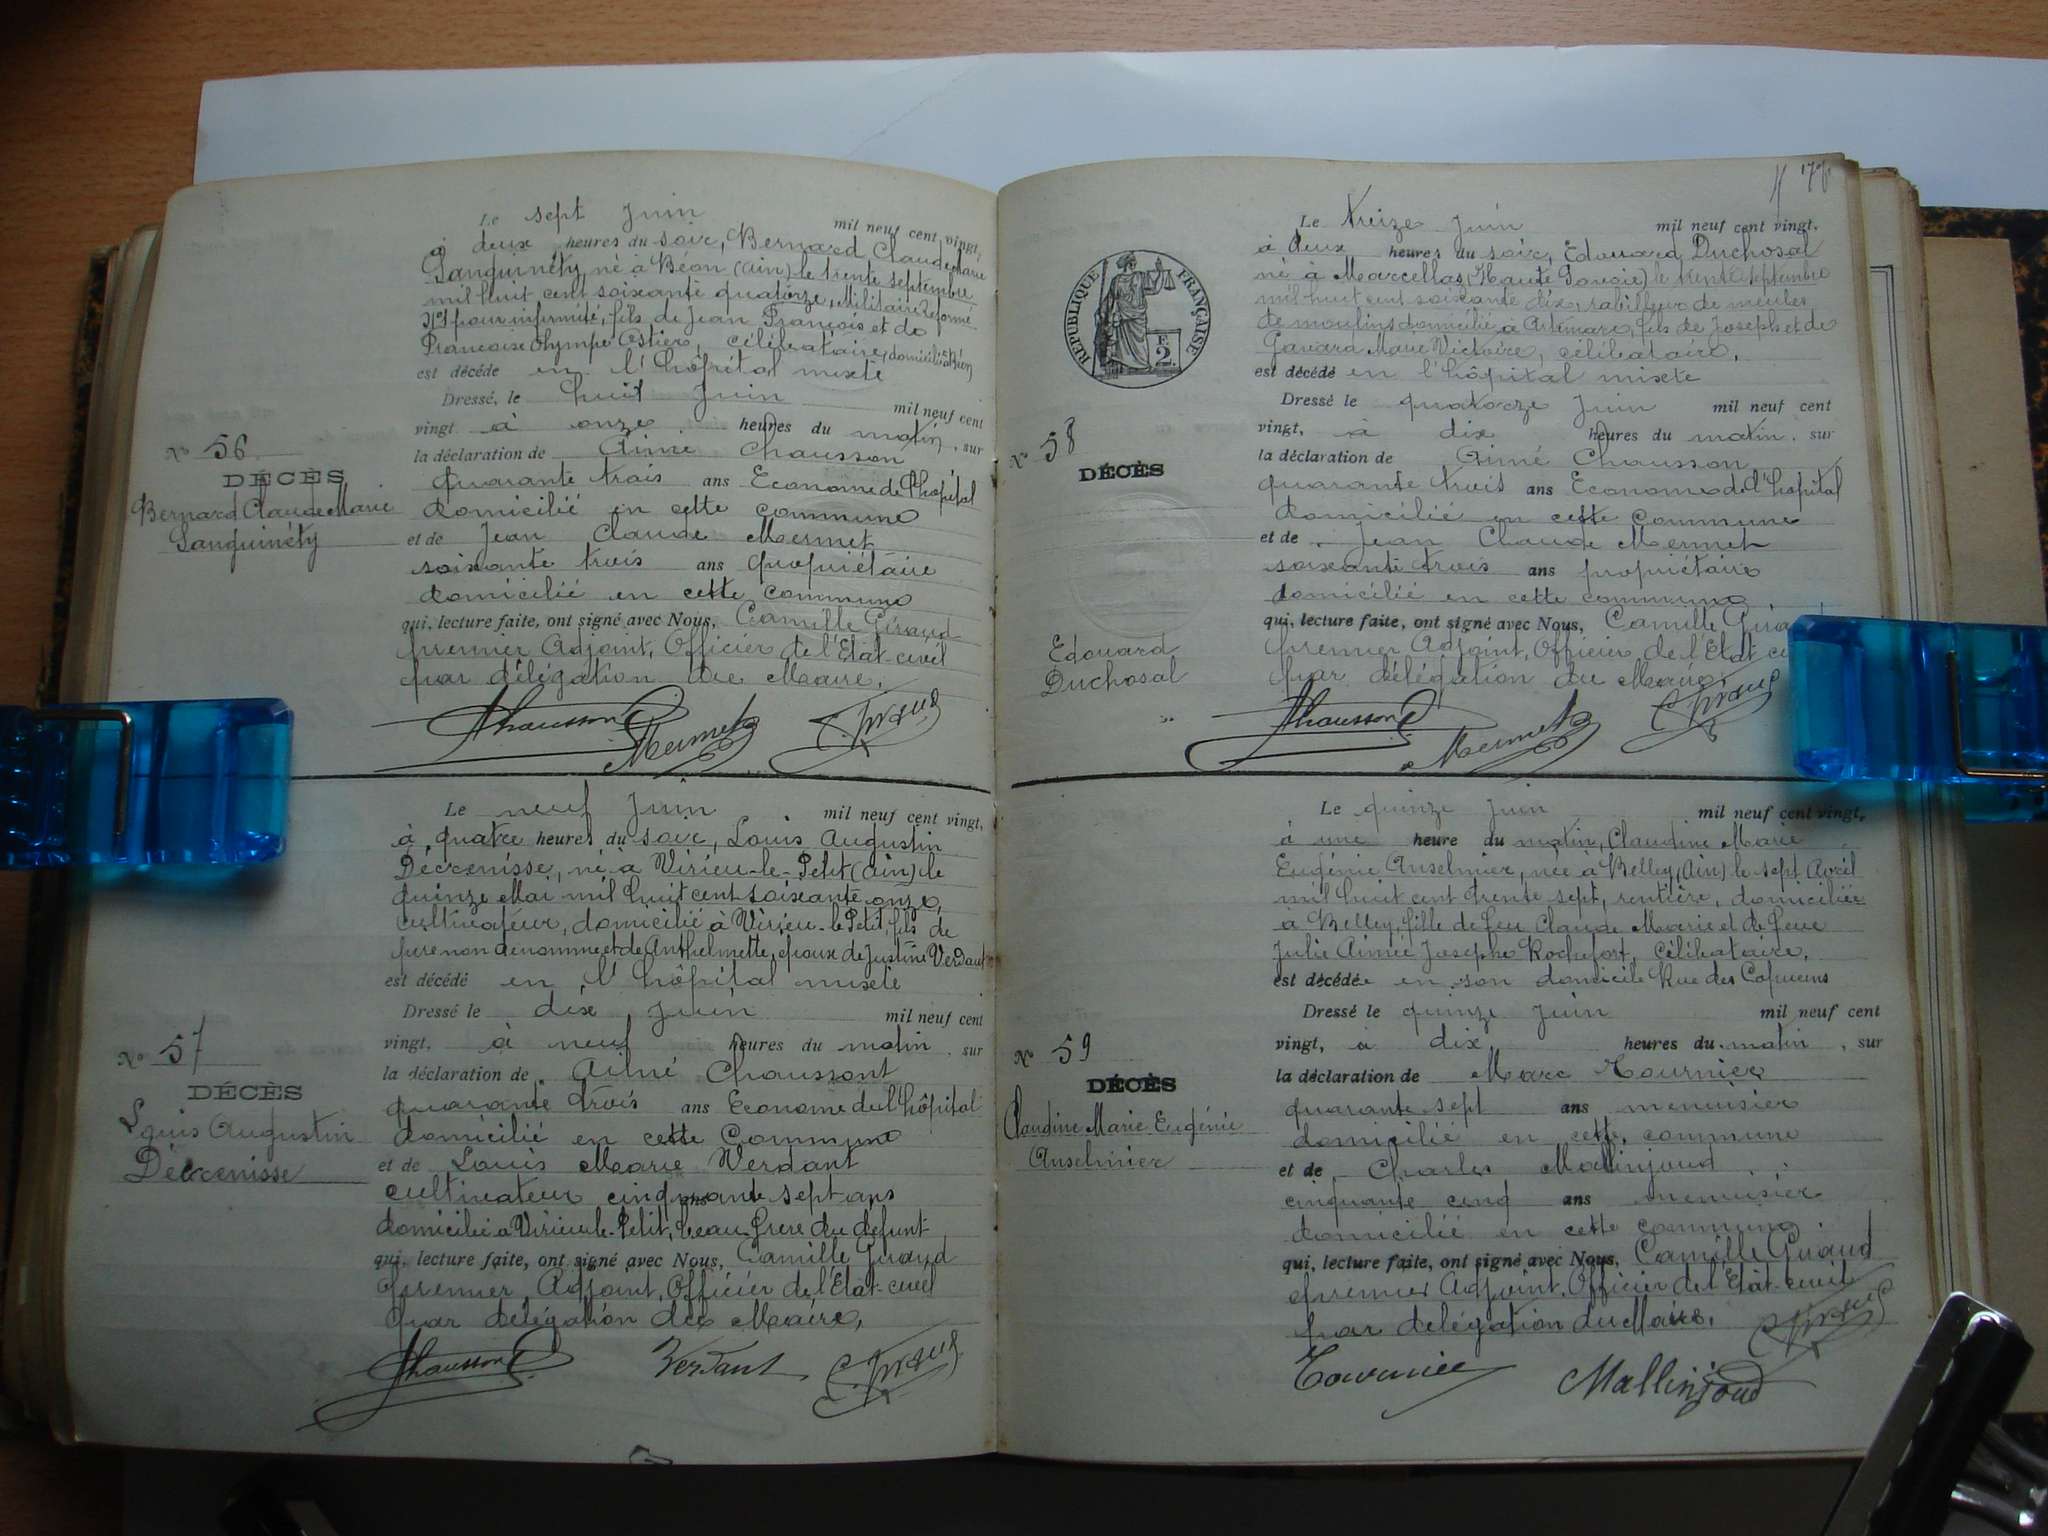 Le sept Juin mil neuf cent vingt,
à deux heures du soir, Bernard Claude Marie
Sanguinéty, né à Béon (Ain) le trente septembre
mil huit cent soixante quatorze, Militaire Réformé
N°1 pour infirmité, fils de Jean François et de
Françoise Olympe Astier, célibataire, domicilié à Béon
est décédé en l'hôpital mixte
Dressé, le huit Juin mil neuf cent
vingt à onze heures du matin, sur
la déclaration de Aimé Chausson
quarante trois ans Econome de l'hôpital
domicilié en cette commune
et de Jean Claude Mermet
soixante trois ans propriétaire
domicilié en cette commune
qui, lecture faite, ont signé avec Nous, Camille Giraud
premier Adjoint, Officier de l'Etat-civil
par délégation du Maire,
Chausson Mermet C. Giraud
N° 56
DÉCÈS
Bernard Claude Marie
Sanguinéty
Le neuf Juin mil neuf cent vingt,
à quatre heures du soir, Louis Augustin
Décrenisse, né à Virieu-le-Petit (Ain) le
quinze Mai mil huit cent soixante onze,
cultivateur, domicilié à Virieu-le-Petit, fils de
père non dénommé et de Anthelmette, époux de Justine Verdant
est décédé en l'hôpital mixte
Dressé le dix Juin mil neuf cent
vingt, à neuf heures du matin, sur
la déclaration de Aimé Chaussont
quarante trois ans Econome de l'hôpital
domicilié en cette Commune
et de Louis Marie Verdant
cultivateur cinquante sept ans
domicilié à Virieu-le-Petit, beau-frère du défunt
qui, lecture faite, ont signé avec Nous, Camille Giraud
premier Adjoint, Officier de l'Etat-civil
par délégation du Maire,
Chausson Verdant C. Giraud
N° 57
DÉCÈS
Louis Augustin
Décrenisse
Le treize Juin mil neuf cent vingt,
à deux heures du soir, Edouard Duchosal
né à Marcellaz (Haute Savoie) le septembre
mil huit cent soixante dix, rabilleur de meules
de moulins domicilié à Artemare, fils de Joseph et de
Gavard Marie Victoire, célibataire,
est décédé en l'hôpital mixte
Dressé le quatorze Juin mil neuf cent
vingt, à dix heures du matin, sur
la déclaration de Aimé Chausson
quarante trois ans Econome de l'hôpital
domicilié en cette commune
et de Jean Claude Mermet
soixante trois ans propriétaire
domicilié en cette commune
qui, lecture faite, ont signé avec Nous, Camille Girau
premier Adjoint, Officier de l'Etat ci
par délégation du Maire,
Chausson Mermet C. Giraud
RÉPUBLIQUE FRANÇAISE
F. 2
N° 58
DÉCÈS
Edouard
Duchosal
Le quinze Juin mil neuf cent vingt,
à une heure du matin, Claudine Marie
Eugénie Anselmier, née à Belley, (Ain) le sept Avril
mil huit cent trente sept, rentière, domiciliée
à Belley, fille de feu Claude Marie et de feue
Julie Aimée Josephe Rochefort, célibataire,
est décédée en son domicile Rue des Capucins
Dressé le quinze Juin mil neuf cent
vingt, à dix heures du matin, sur
la déclaration de Marc Tournier
quarante sept ans menuisier
domicilié en cette commune
et de Charles Mallinjoud
cinquante cinq ans menuisier
domicilié en cette commune
qui, lecture faite, ont signé avec Nous, Camille Giraud
premier Adjoint, Officier de l'Etat-civil
par délégation du Maire, C. Giraud
Tournier Mallinjoud
N° 59
DÉCÈS
Claudine Marie Eugénie
Anselmier